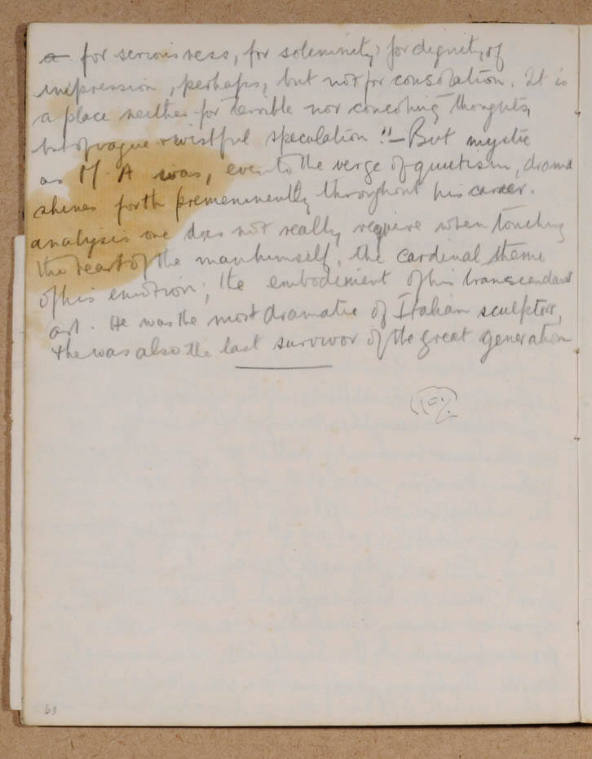 a for seriousness, for solemnity, for dignity of
impression, perhaps, but not for consolation. It is
a place neither for terrible nor consoling thoughts
but of vague & wistful speculation!! – But mystic
as M. A was, even to the verge of quietism, drama
shines forth preeminently throughout his career.
analysis one does not really require when touching
the heart of the man himself, the cardinal theme
of his emotion; the embodiment of his transcendant
art. He was the most dramatic of Italian sculptors,
& he was also the last survivor of the great generation
63